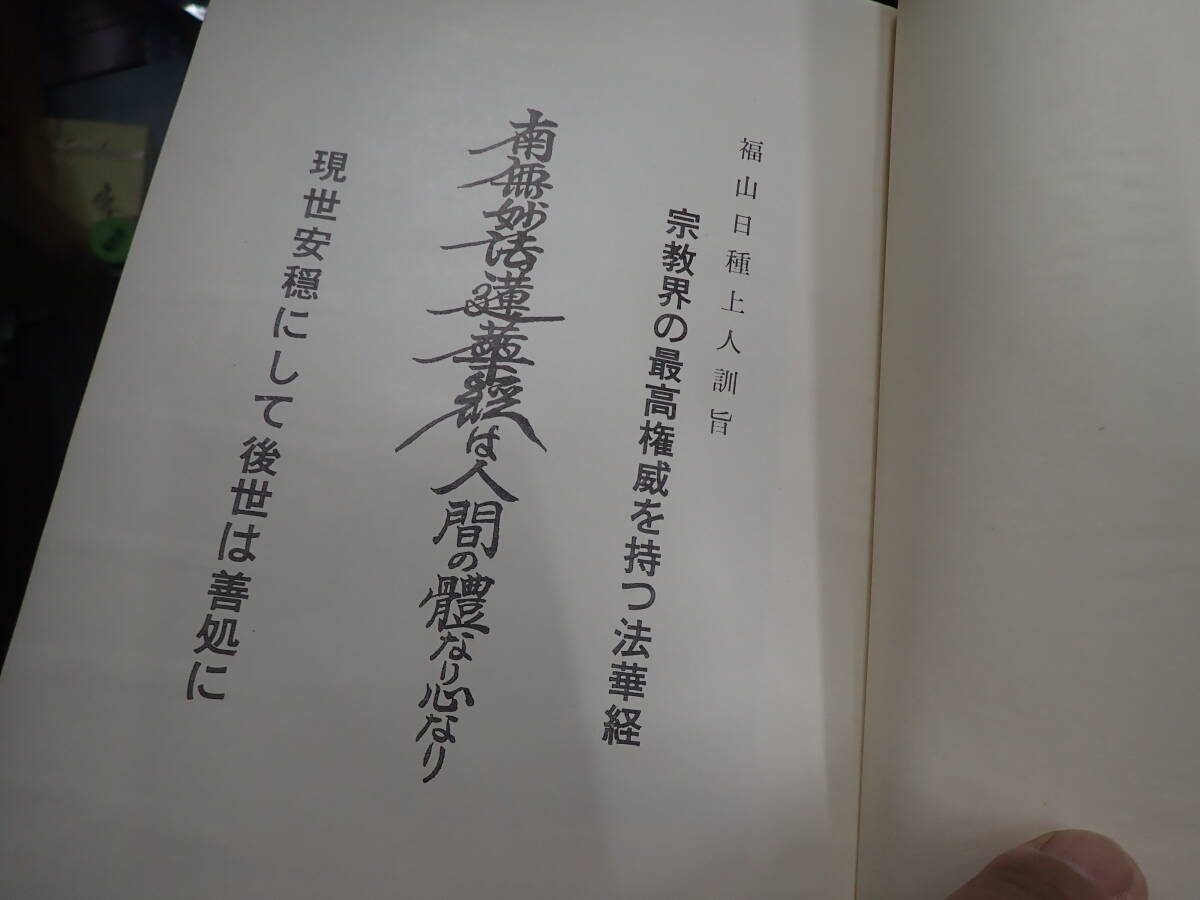 福山日種上人訓旨
宗教界の最高権威を持つ法華経
南無妙法蓮華經は人間の體なり心なり
現世安穏にして後世は善処に